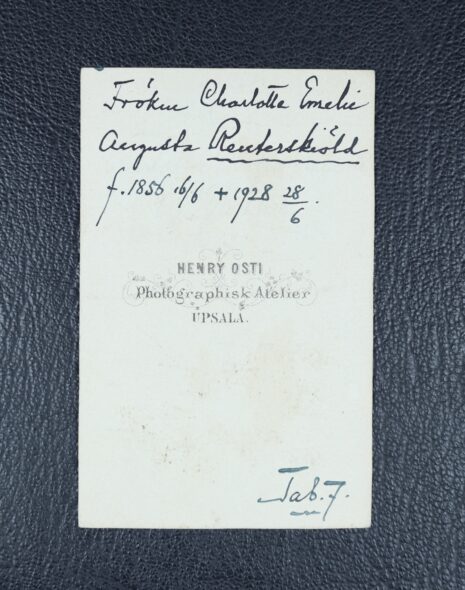 Fröken Charlotte Emelie
Augusta Reuterskiöld
f. 1856 16/6 + 1928 28/6.
HENRY OSTI
Photographisk Atelier
UPSALA.
Tab. 7.